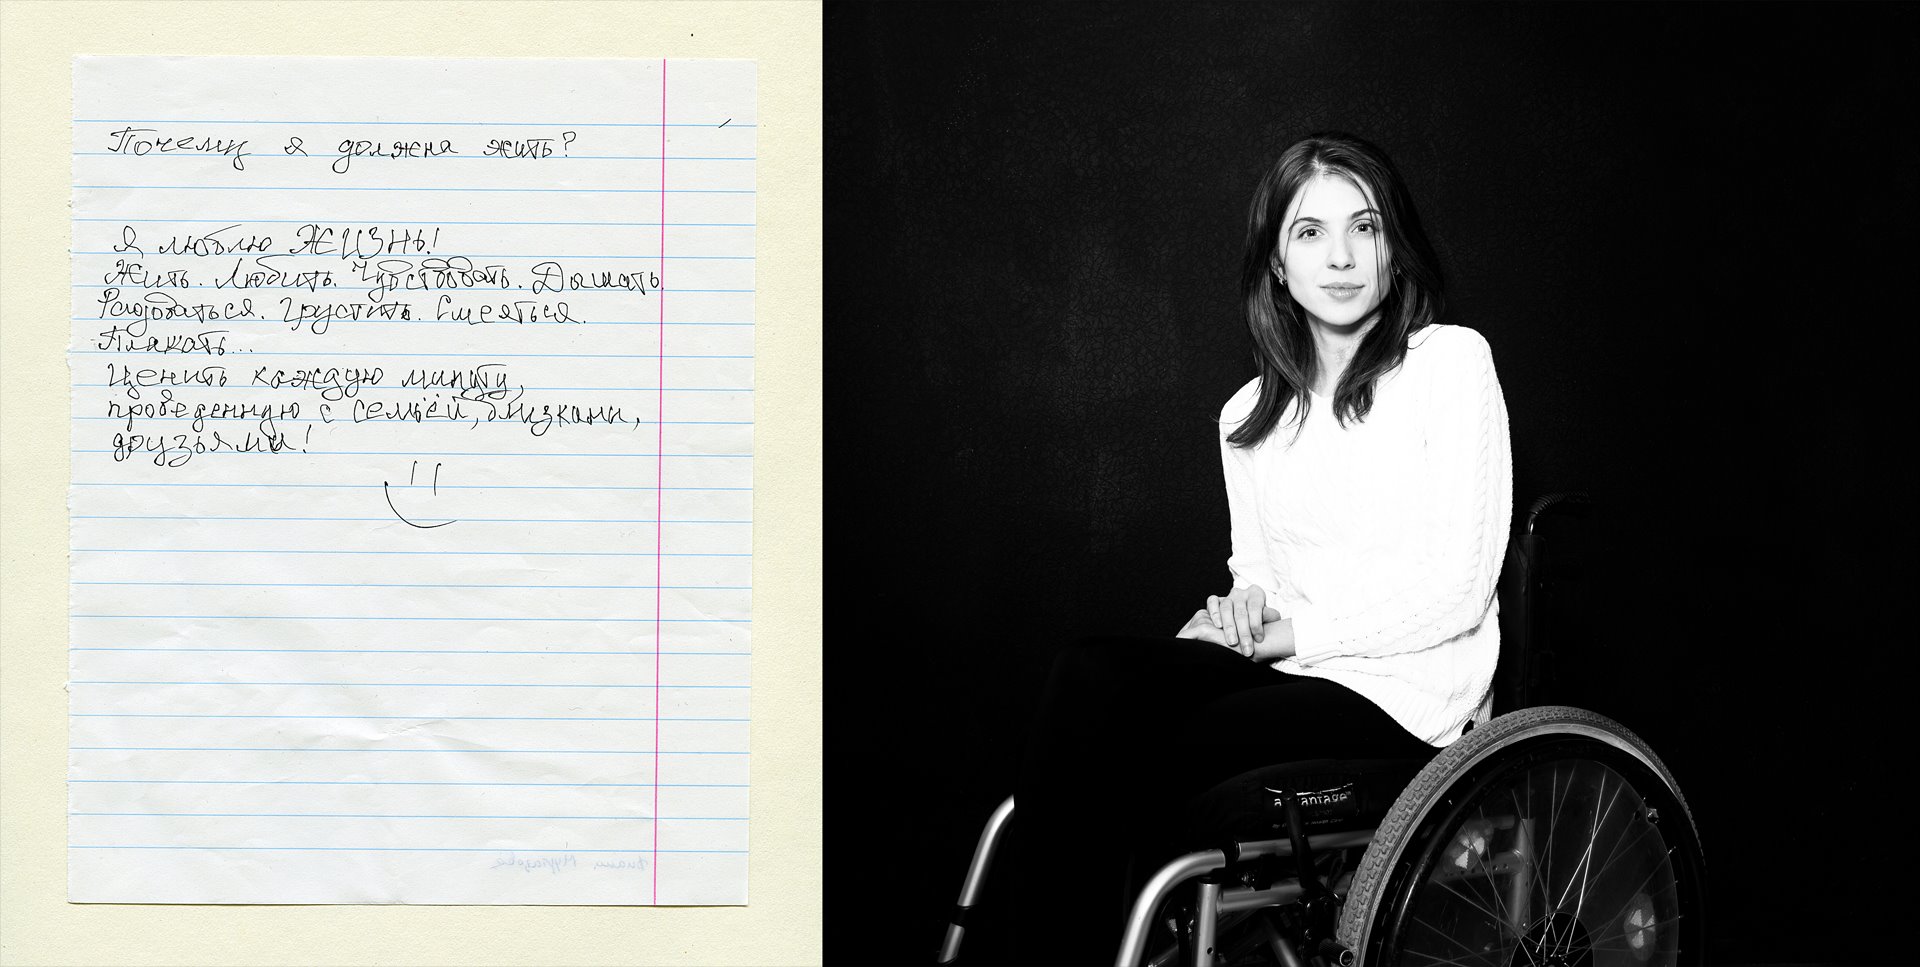 Почему я должна жить?
Я люблю ЖИЗНЬ!
Жить. Любить. Чувствовать. Дышать.
Радоваться. Грустить. Смеяться.
Плакать...
Ценить каждую минуту,
проведенную с семьёй, близкими,
друзьями!
advantage